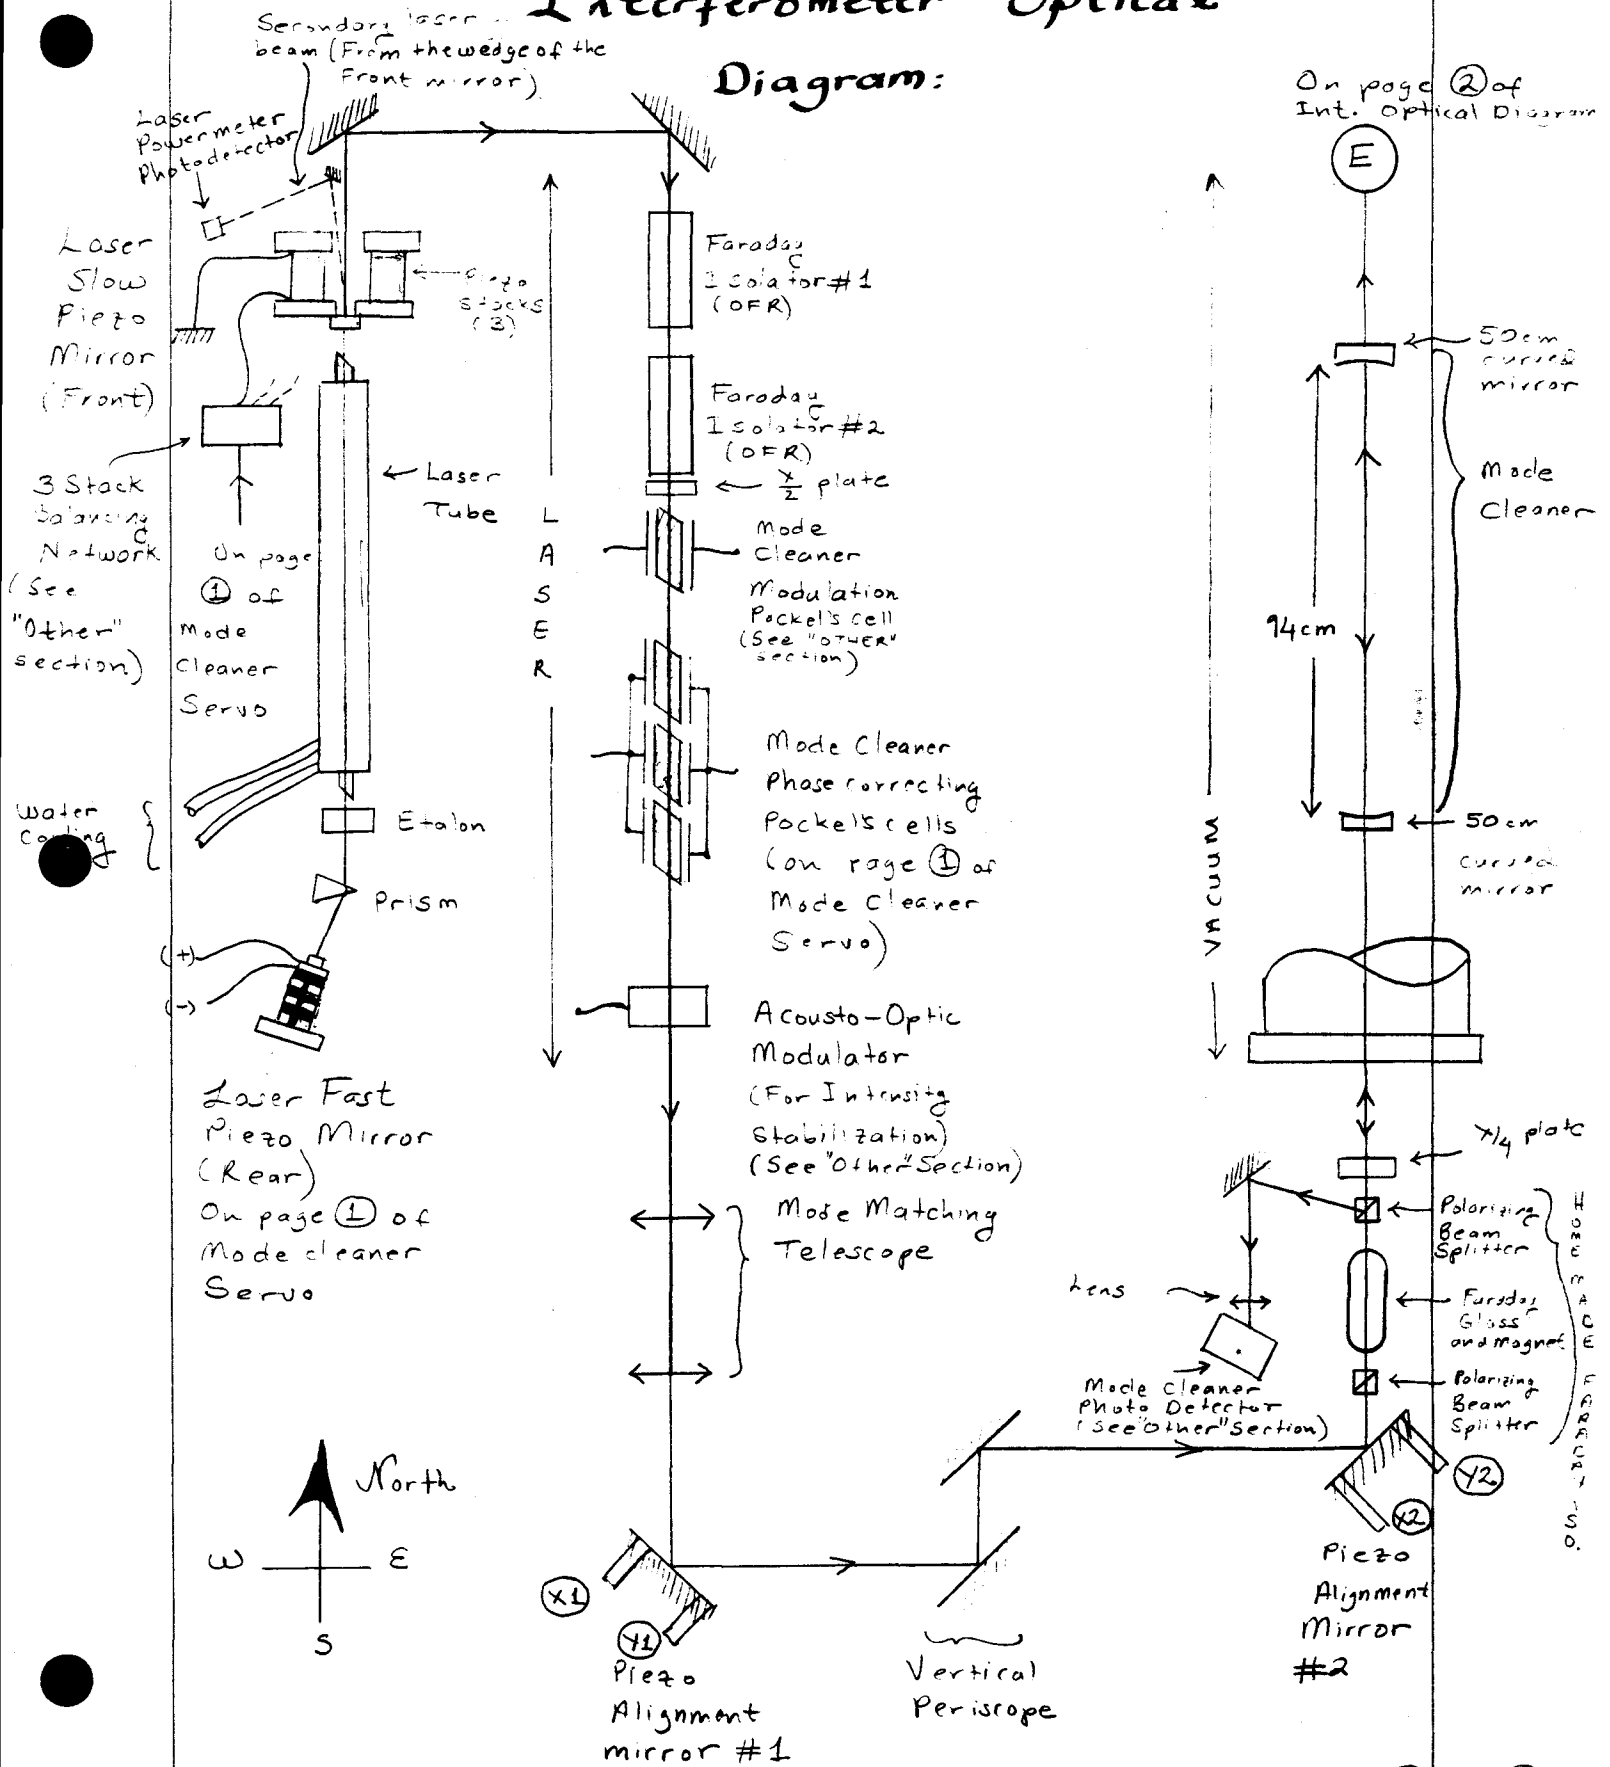 Interferometer Optical
Diagram:
Secondary laser
beam (From the wedge of the
Front mirror)
Laser
Powermeter
Photodetector
Laser
Slow
Piezo
Mirror
(Front)
Piezo
stacks
(3)
3 Stack
Balancing
Network
(See
"Other"
section)
On page
① of
Mode
Cleaner
Servo
Laser
Tube
Water
Cooling
Etalon
Prism
(+)
(-)
Laser Fast
Piezo Mirror
(Rear)
On page ① of
Mode cleaner
Servo
LASER
Faraday
Isolator #1
(OFR)
Faraday
Isolator #2
(OFR)
λ/2 plate
Mode
Cleaner
Modulation
Pockel's cell
(See "OTHER"
section)
Mode Cleaner
Phase correcting
Pockel's cells
(on page ① of
Mode Cleaner
Servo)
Acousto-Optic
Modulator
(For Intensity
Stabilization)
(See "Other" Section)
Mode Matching
Telescope
North
W
E
S
X1
Y1
Piezo
Alignment
mirror #1
Vertical
Periscope
On page ② of
Int. Optical Diagram
E
50cm
curved
mirror
Mode
Cleaner
94cm
50cm
curved
mirror
VACUUM
λ/4 plate
Polarizing
Beam
Splitter
Faraday
Glass
and magnet
Polarizing
Beam
Splitter
HOME MADE FARADAY ISO.
Lens
Mode Cleaner
Photo Detector
(see "Other" Section)
Y2
X2
Piezo
Alignment
Mirror
#2